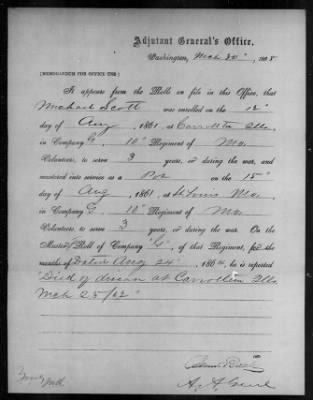 Adjutant General's Office,
Washington, Mch 20", 1868
[MEMORANDUM FOR OFFICE USE.]
It appears from the Rolls on file in this Office, that
Michael Scott was enrolled on the 12"
day of Aug, 1861 at Carrollton Ills.
in Company G, 10" Regiment of Mo.
Volunteers, to serve 3 years, or during the war, and
mustered into service as a on the 15"
day of Aug, 1861 at St Louis Mo.,
in Company G, 10" Regiment of Mo.
Volunteers, to serve 3 years, or during the war. On the
Muster Roll of Company "G", of that Regiment, for the
months of Dated Aug 24", 186 , he is reported
"Died of disease at Carrollton Ills
Mch 25/62"